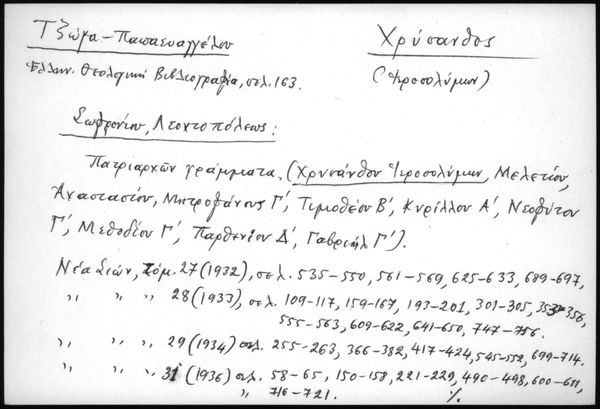 Τζώγα-Παπαευαγγέλου
Χρύσανθος
Ελλην. Θεολογική Βιβλιογραφία, σελ. 163.
(Ἱεροσολύμων)
Σωφρονίου, Λεοντοπόλεως:
Πατριαρχῶν γράμματα, (Χρυσάνθου Ἱεροσολύμων, Μελετίου,
Ἀναστασίου, Μητροφάνους Γ', Τιμοθέου Β', Κυρίλλου Α', Νεοφύτου
Γ', Μεθοδίου Γ', Παρθενίου Δ', Γαβριήλ Γ').
Νέα Σιών, τόμ. 27 (1932), σελ. 535-550, 561-569, 625-633, 689-697,
,, ,, ,, 28 (1933), σελ. 109-117, 159-167, 193-201, 301-305, 353-356,
555-563, 609-622, 641-650, 747-756.
,, ,, ,, 29 (1934) σελ. 255-263, 366-382, 417-424, 545-552, 699-714.
,, ,, ,, 31 (1936) σελ. 58-65, 150-158, 221-229, 490-498, 600-611,
,, 716-721. ./.